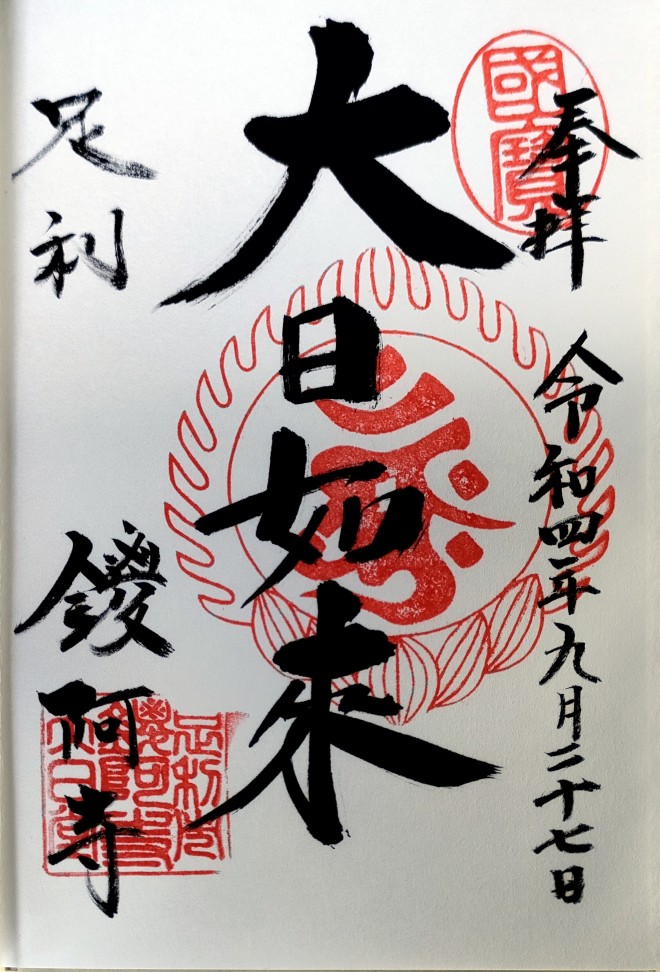 國寶
奉拝
令和四年九月二十七日
大日如来
足利
鑁阿寺